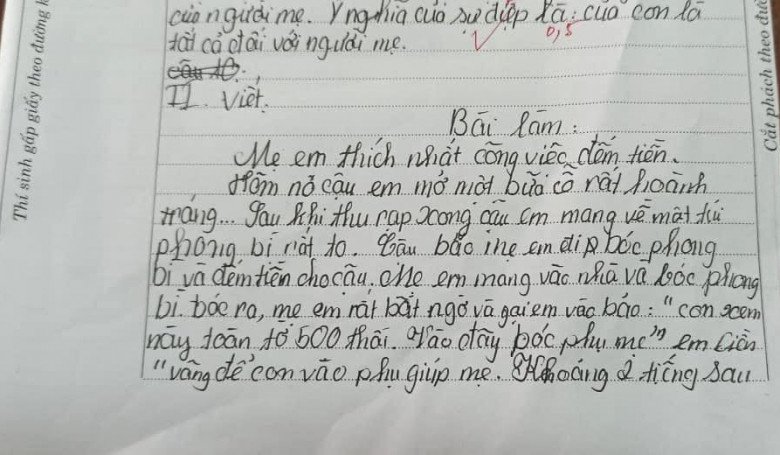 của người mẹ. Ý nghĩa của sự điệp là: của con là
tất cả đối với người mẹ.
0,5
câu 10:
II. Viết.
Bài làm:
Mẹ em thích nhất công việc đếm tiền.
Hôm nó cậu em mở một bữa cỗ rất hoành
tráng... Sau khi thu rạp xong cậu em mang về một túi
phong bì rất to. Cậu bảo mẹ em đi bóc phong
bì và đếm tiền cho cậu. Mẹ em mang vào nhà và bóc phong
bì. bóc ra, mẹ em rất bất ngờ và gọi em vào bảo: "con xem
này toàn tờ 500 thôi. Vào đây bóc phụ mẹ" em liền
"vâng để con vào phụ giúp mẹ. Khoảng 2 tiếng sau
Thí sinh gấp giấy theo đường
Cắt phách theo